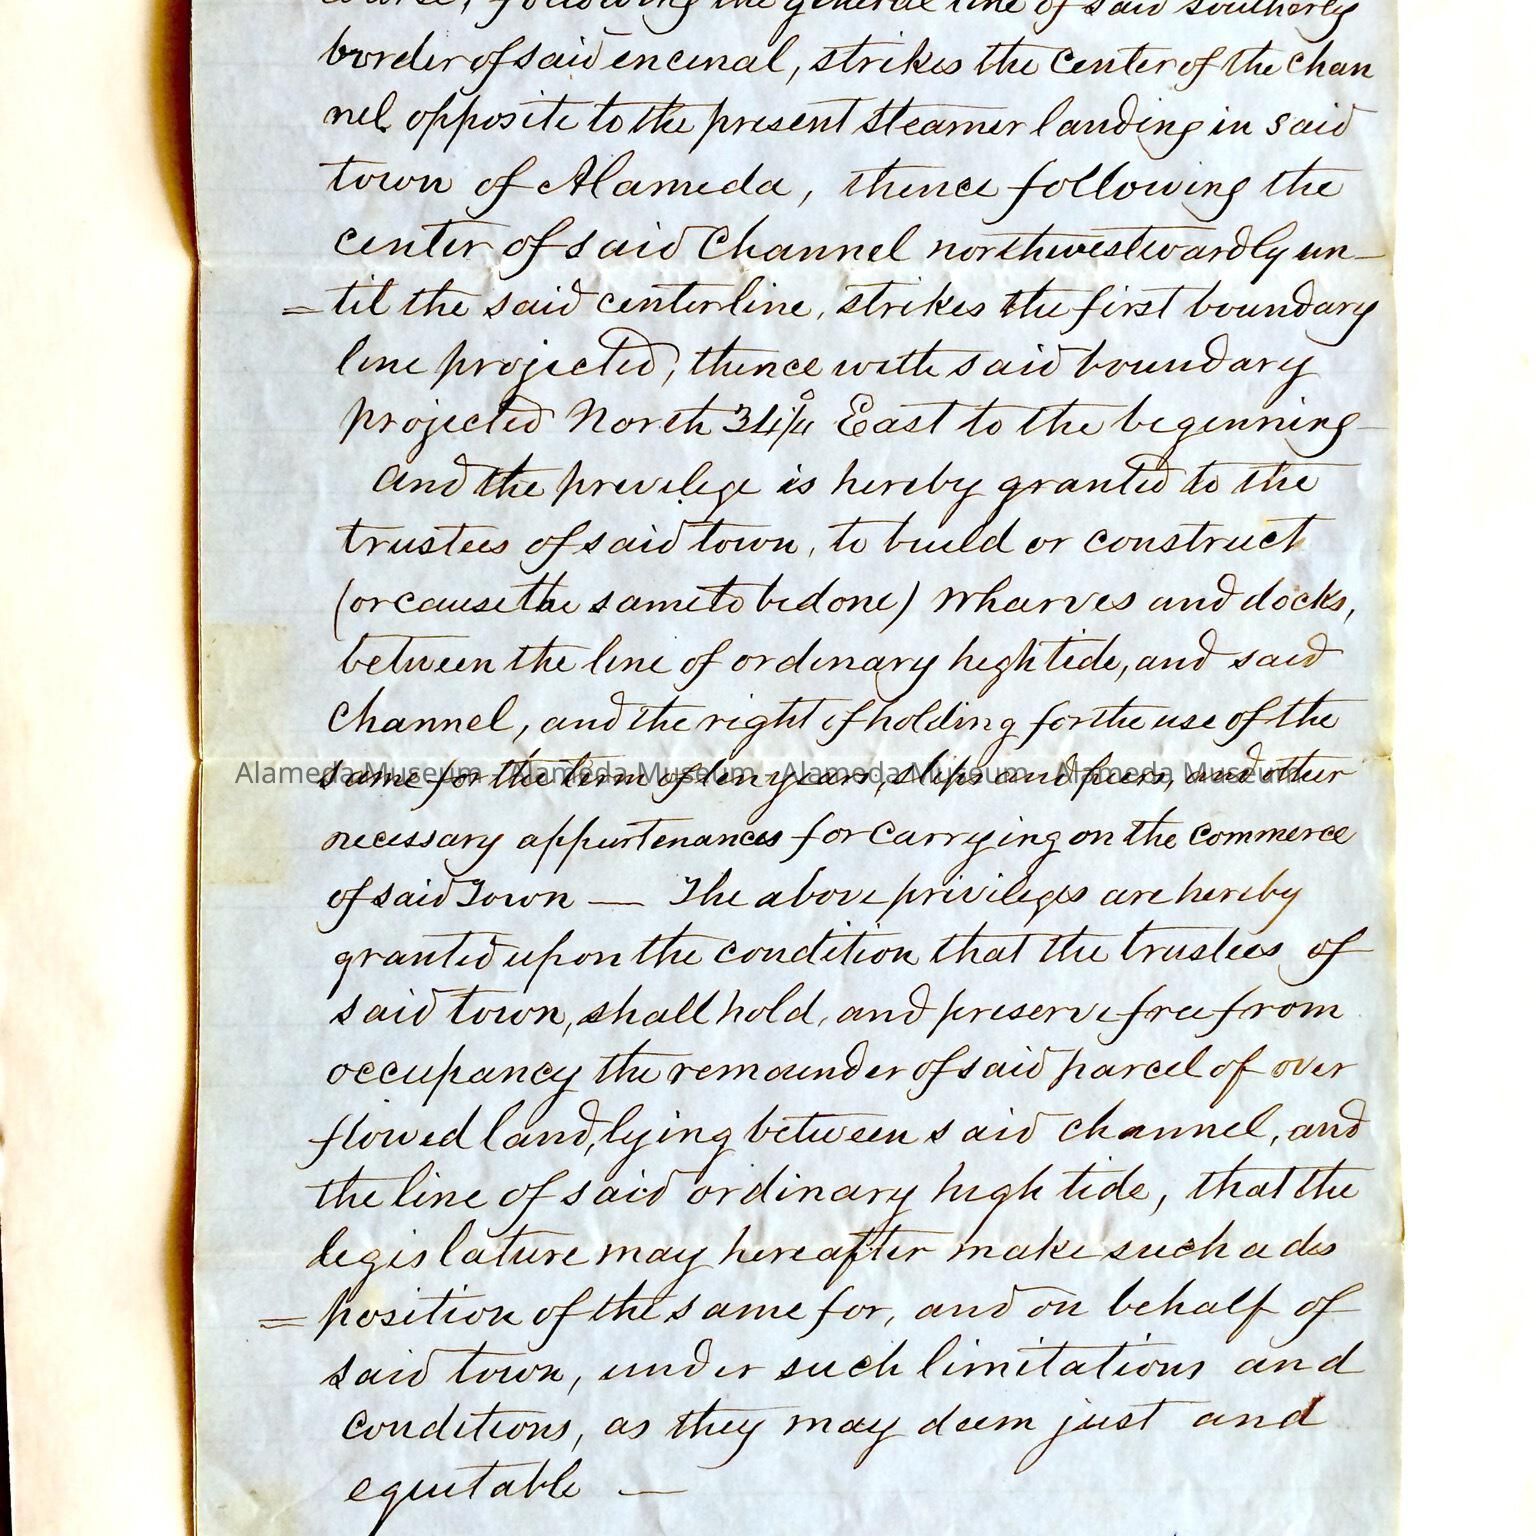 course, following the general line of said southerly
border of said encinal, strikes the center of the chan
nel opposite to the present steamer landing in said
town of Alameda, thence following the
center of said Channel northwestwardly un–
=til the said center line, strikes the first boundary
line projected; thence with said boundary
projected North 34¼° East to the beginning–
and the privilege is hereby granted to the
trustees of said town, to build or construct
(or cause the same to be done) wharves and docks,
between the line of ordinary high tide, and said
Channel, and the right of holding for the use of the
same for the term of ten years, slips and piers, and other
Alameda Museum - Alameda Museum - Alameda Museum - Alameda Museum
necessary appurtenances for carrying on the commerce
of said Town — The above privileges are hereby
granted upon the condition that the trustees of
said town, shall hold, and preserve free from
occupancy the remainder of said parcel of over
flowed land, lying between said channel, and
the line of said ordinary high tide, that the
legislature may hereafter make such a dis
=position of the same for, and on behalf of
said town, under such limitations and
conditions, as they may deem just and
equitable —